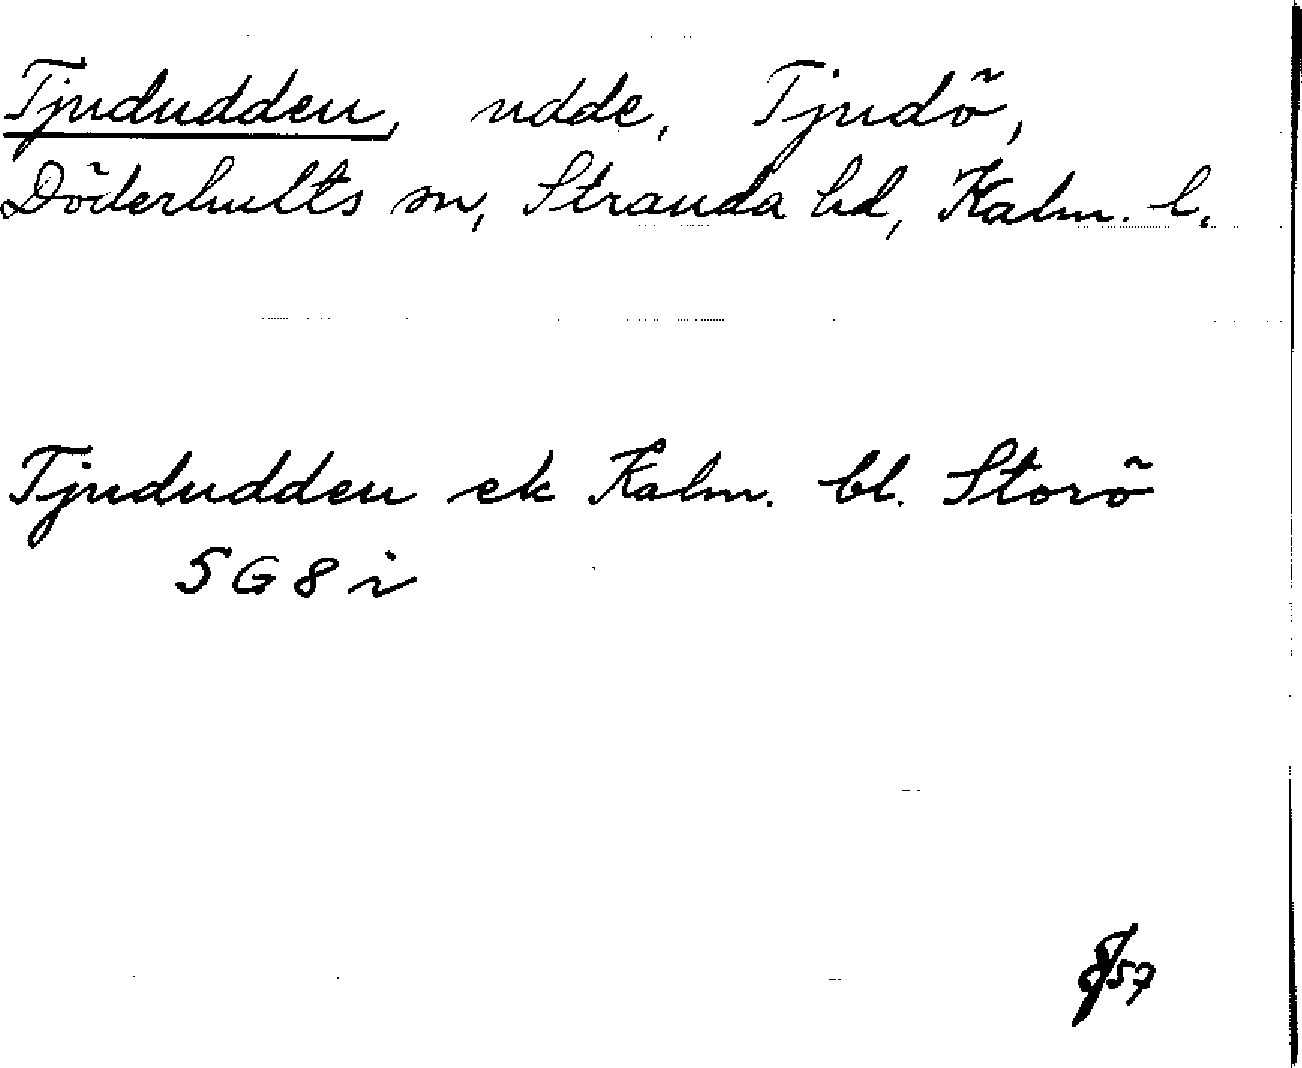 Tjududden, udde, Tjudö,
Döderhults sn, Stranda hd, Kalm. l.
Tjududden ek Kalm. bl. Storö
5G8i
8/57